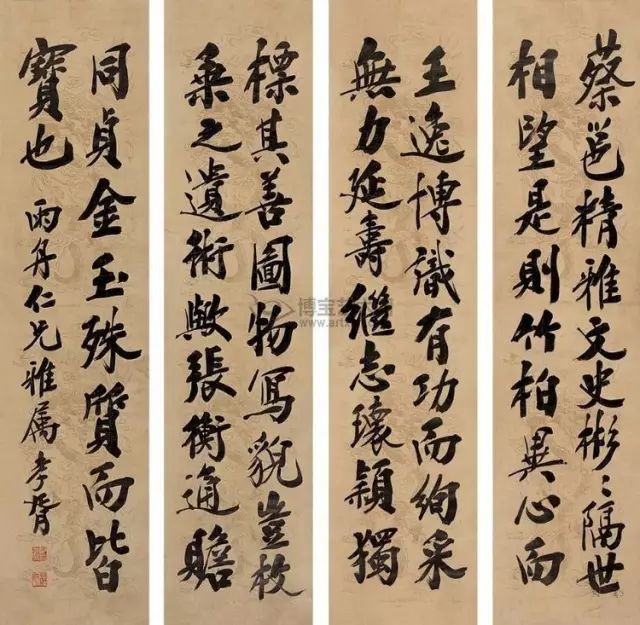 蔡邕精雅文史彬〻隔世
相望是則竹柏異心而
王逸博識有功而絢采
無力延壽繼志瓌穎獨
標其善圖物寫貌豈枚
乘之遺術歟張衡通贍
同貞金玉殊質而皆
寶也 雨丹仁兄雅屬 孝胥
博宝
www.art